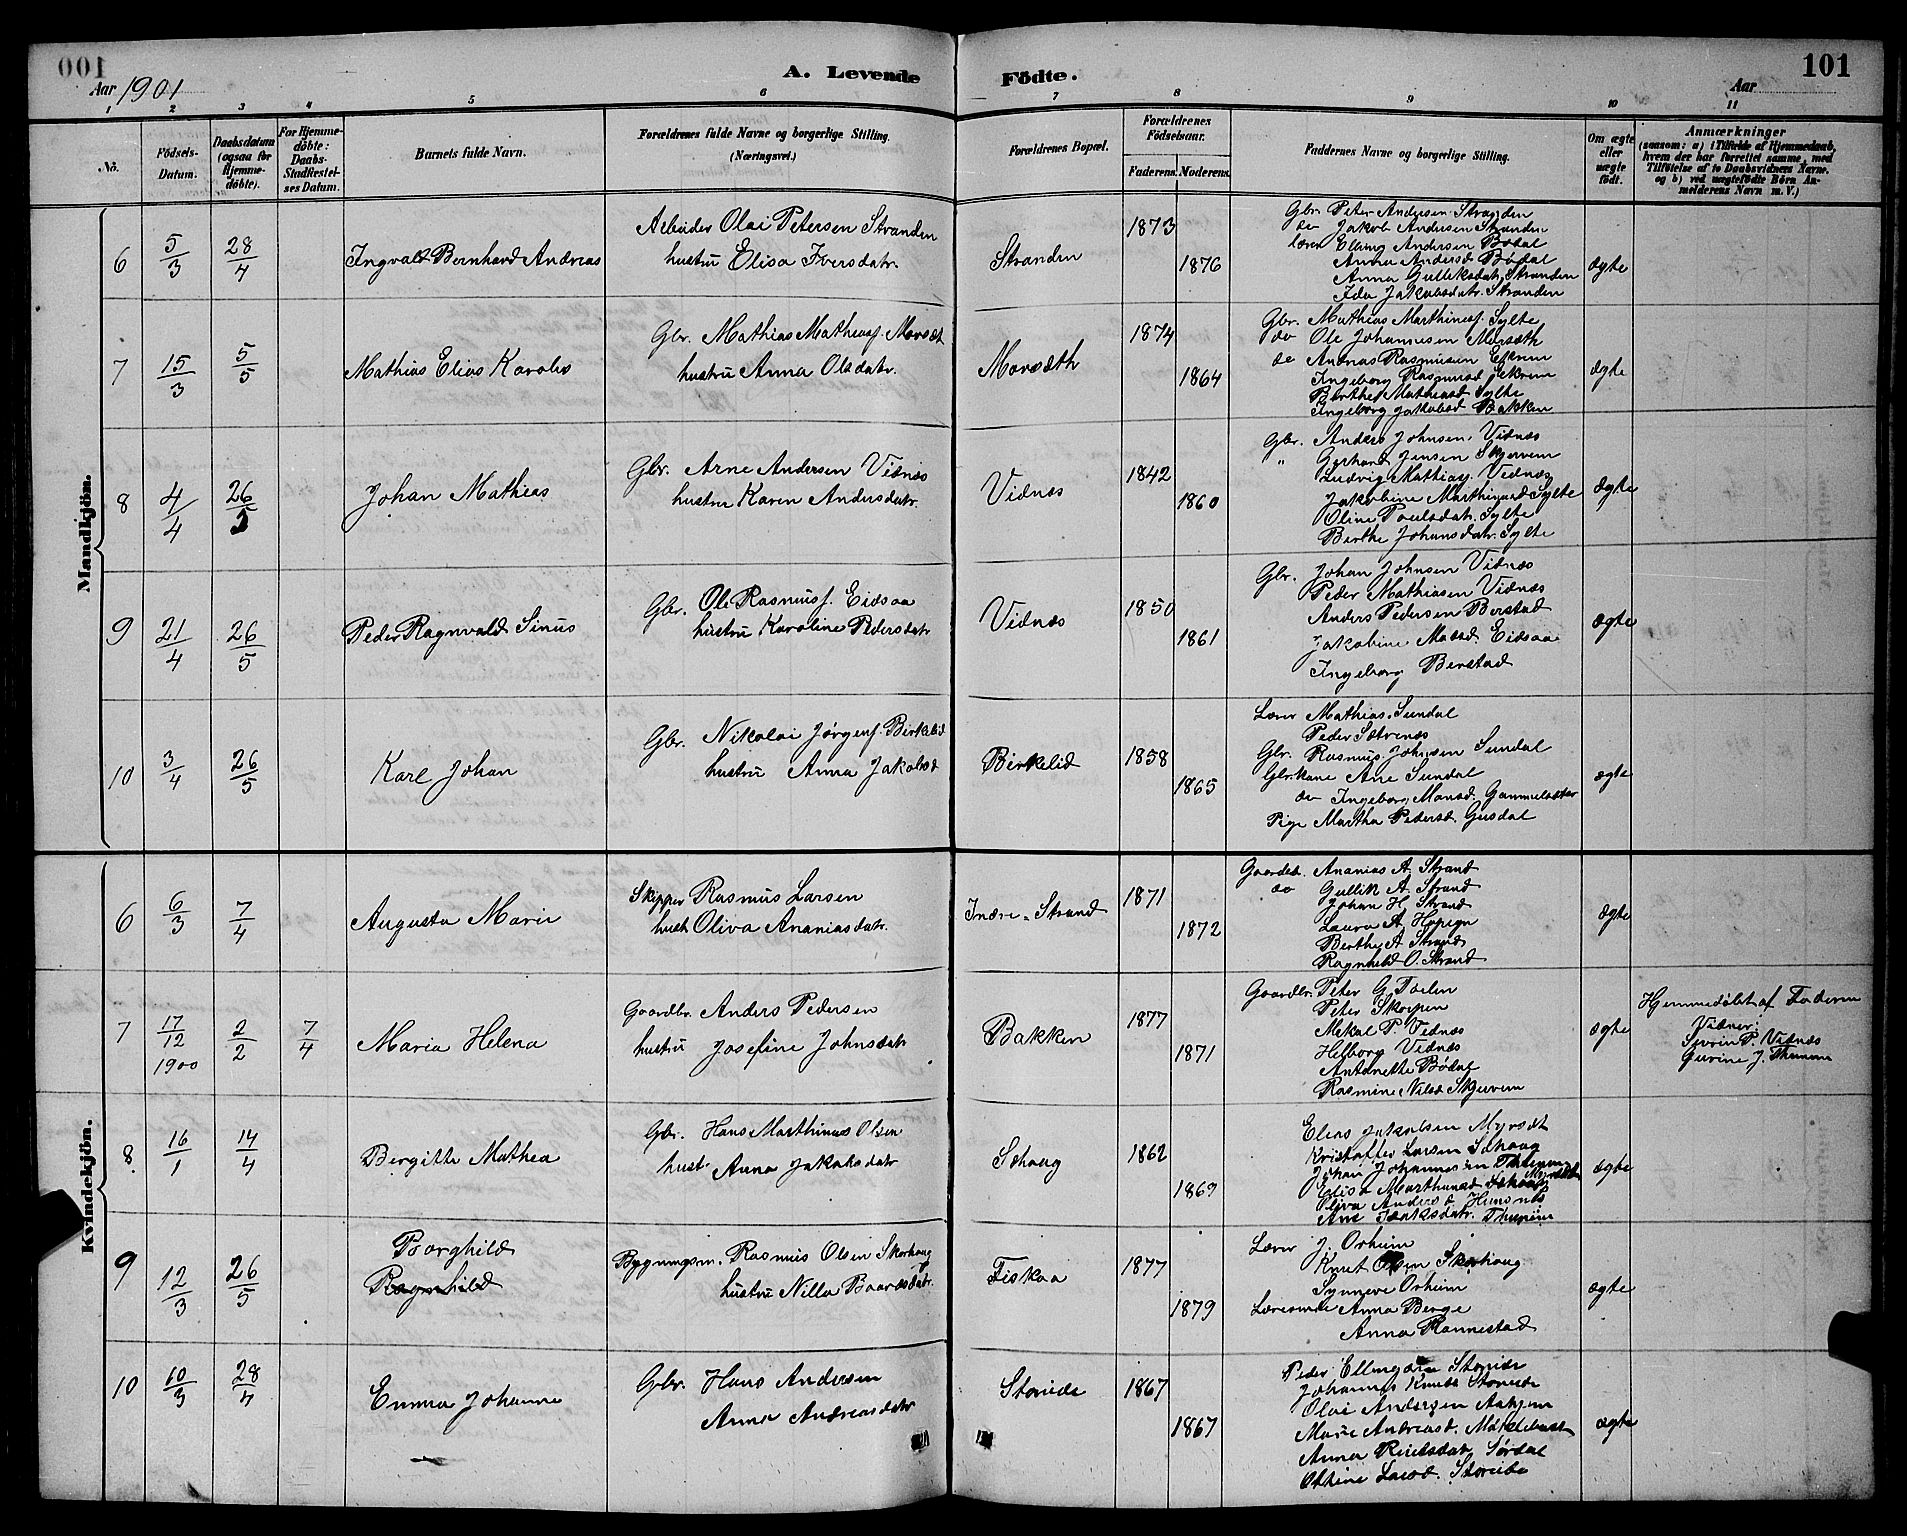 001
101
Aar 1901
A. Levende
Födte.
Aar
1 2 3 4 5 6 7 8 9 10 11
No.
Födsels-Datum.
Daabsdatum (ogsaa for Hjemme-döbte).
For Hjemme-döbte: Daabs-Stadfestel-ses Datum.
Barnets fulde Navn.
Forældrenes fulde Navne og borgerlige Stilling.
(Næringsvei.)
Forældrenes Bopæl.
Forældrenes Födselsaar.
Faderens. Moderens.
Faddernes Navne og borgerlige Stilling.
Om ægte eller uægte födt.
Anmærkninger
(saasom: a) i Tilfælde af Hjemmedaab,
hvem der har forrettet samme, med
Tilföielse af to Daabsvidners Navne.
og b) ved uægtefödte Börn An-
melderens Navn m. V.)
Mandkjön.
6 5/3 28/4 Ingvald Bernhard Andreas
Arbeider Olai Petersen Stranden
hustru Elisa Iversdatr.
Stranden 1873 1876
Gbr. Peter Andersen Stranden
do Jakob Andersen Stranden
lærer Elling Andersen Bødal
Anna Andersd Bødal
Anna Gulliksdatr. Stranden
Ida Jakobsdatr. Stranden
ægte
7 15/3 5/5 Mathias Elias Karolus
Gbr. Mathias Mathiasf. Morsæt
hustru Anna Olsdatr.
Morsæth 1874 1864
Gbr. Mathias Marthinusf. Sylte
do Ole Johannesen Morsæth
do Andreas Rasmusen Ekrem
Ingeborg Rasmusd Ekrem
Berthe Mathiasd Sylte
Ingeborg Jakobsd Bakken
ægte
8 4/4 26/5 Johan Mathias
Gbr. Arne Andersen Vidnæs
hustru Karen Andersdatr.
Vidnæs 1842 1860
Gbr. Anders Johnsen Vidnæs
" Gerhard Jensen Skjervem
Ludvig Mathiasf. Vidnæs
Jakobine Marthinusd Sylte
Oline Poulsdatr. Sylte
Berthe Johansdatr. Sylte
ægte
9 21/4 26/5 Peder Ragnvald Sinus
Gbr. Ole Rasmusf. Eidsaa
hustru Karoline Pedersdatr
Vidnæs 1850 1861
Gbr. Johan Johnsen Vidnæs
Peder Mathiasen Vidnæs
Anders Pedersen Berstad
Jakobine Madsd Eidsaa
Ingeborg Berstad
ægte
10 3/4 26/5 Karl Johan
Gbr. Nikolai Jørgenf. Birkelid
hustru Anna Jakobsd
Birkelid 1858 1865
Lærer Mathias Sundal
Peder Sætrenæs
Gbr. Rasmus Johnsen Sundal
Gbr.kone Ane Sundal
do Ingeborg Monsd. Gammelsæter
Pige Martha Pedersd. Gusdal
ægte
Kvindekjön.
6 6/3 7/4 Augusta Marie
Skipper Rasmus Larsen
hust Oliva Ananiasdatr.
Indre-Strand 1871 1872
Gaardbr. Ananias A. Strand
do Gullik A. Strand
Johan H. Strand
Laura A.
Berthe A Strand
Ragnhild O. Strand
ægte
7 17/12 1900 2/2 7/4 Maria Helena
Gaardbr. Anders Pedersen
hustru Josefine Johnsdatr
Bakken 1877 1871
Gaardbr. Peter G
Peter Skorpen
Mekal P. Vidnæs
Helborg Vidnæs
Antonette Bødal
Rasmine Nilsd Skjervem
ægte
Hjemmedøbt af Faderen
Vidner:
Sevrin P. Vidnæs
Gurine J. Thunem
8 16/1 14/4 Bergitte Mathea
Gbr. Hans Marthinus Olsen
hust. Anna Jakobsdatr
Sæhaug 1862 1869
Elias Jakobsen Myrsæt
Kristoffer Larsen Sæhaug
Johan Johannessen Thunem
Elisa Marthinusd Myrsæt
Oliva Andersd Hunsnæs
Ane Isaksdatr. Thunem
ægte
9 12/3 26/5 Borghild
Ragnhild
Bygningsm. Rasmus Olsen Skorhaug
hustru Nilla Baardsdatr.
Fiskaa 1877 1879
Lærer J. Orheim
Knut Olsen Skorhaug
Synneve Orheim
Lærerinde Anna Berge
Anna Rannestad
ægte
10 10/3 28/4 Emma Johanne
Gbr. Hans Andersen
Anna Andreasdatr
Storeide 1867 1867
Peder Ellingsen Storeide
Johannes Knuts Storeide
Olai Andersen Aahjem
Marie Andreasd.
Anna Sørdal
Ottine Larsd. Storeide
ægte